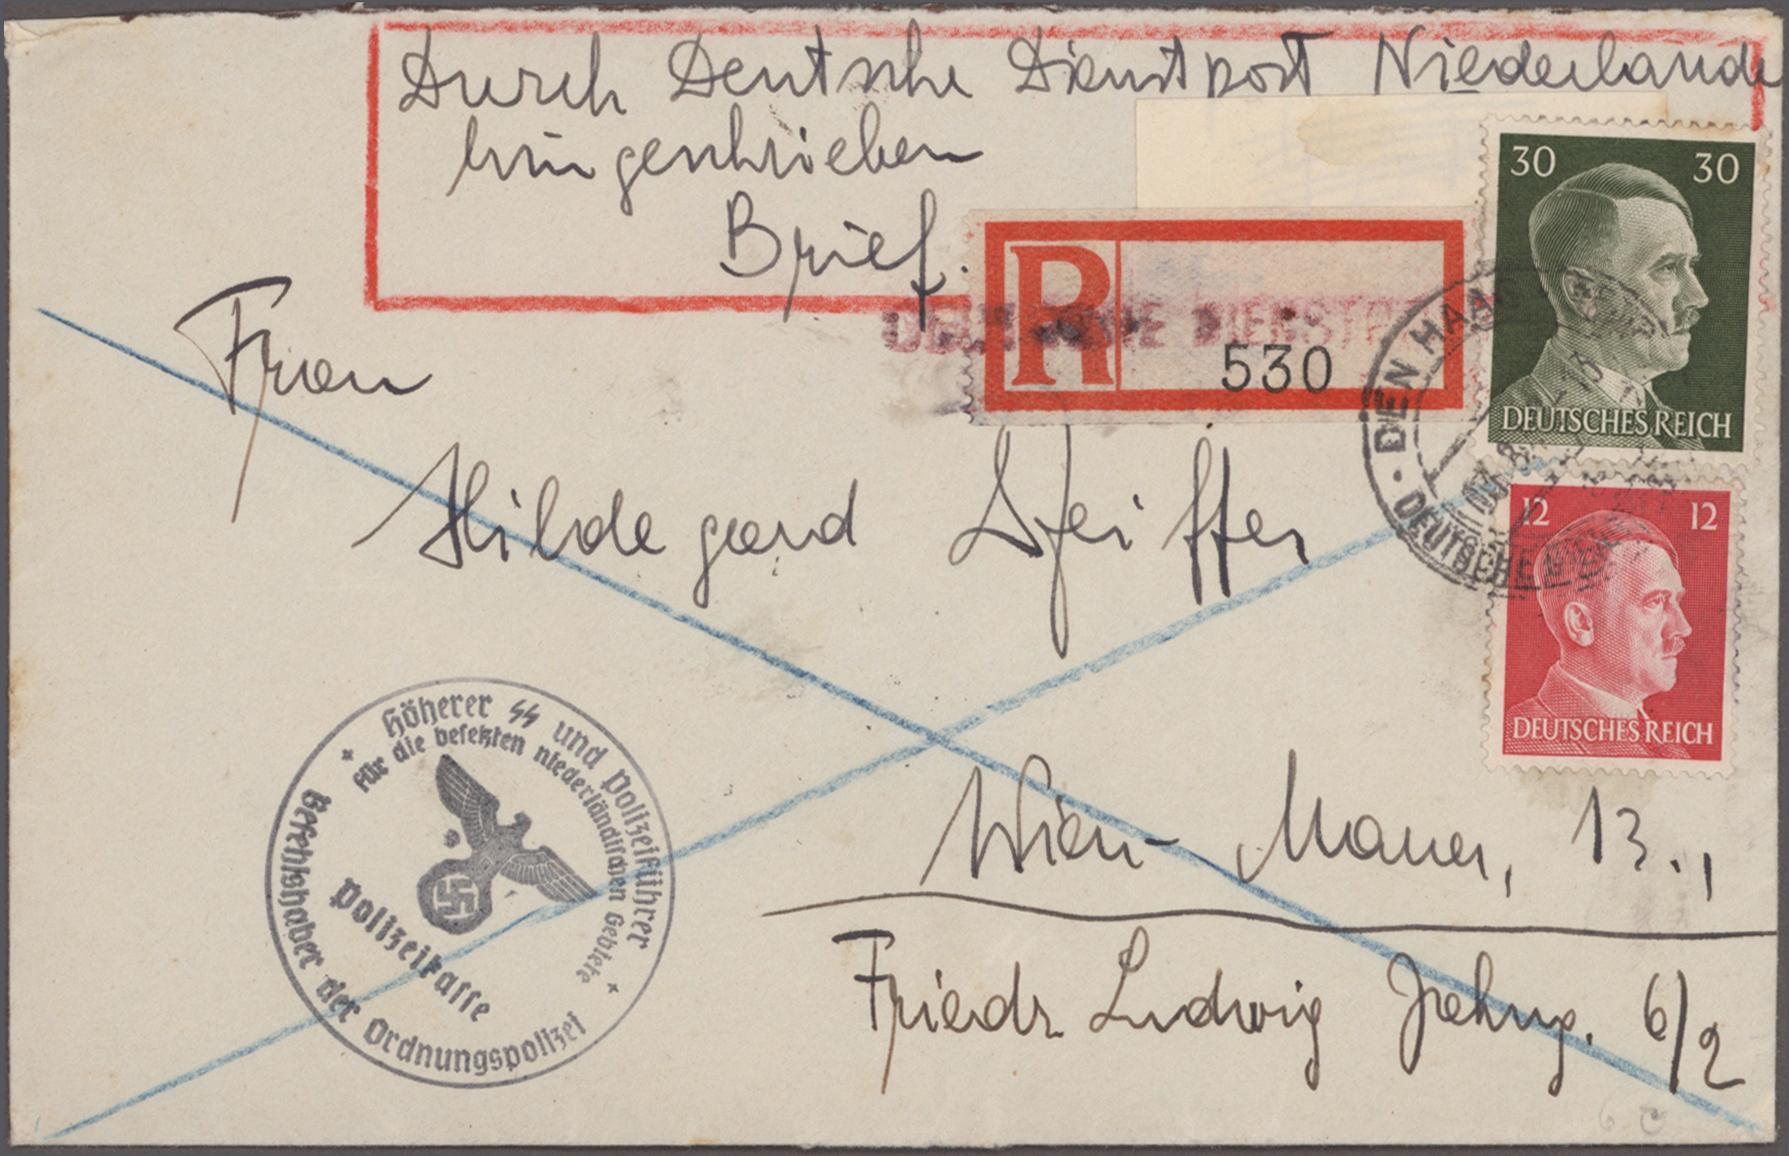 Durch Deutsche Dienstpost Niederlande
Eingeschrieben
Brief.
30 30
DEUTSCHES REICH
R
DEUTSCHE DIENSTP
530
DEN HAAG
DEUTSCHE
12 12
DEUTSCHES REICH
Frau
Hildegard Pfeiffer
Wien-Mauer, 13.,
Friedr. Ludwig Jahng. 6/2
Höherer SS und Polizeiführer
für die besetzten niederländischen Gebiete
Befehlshaber der Ordnungspolizei
Polizeikasse